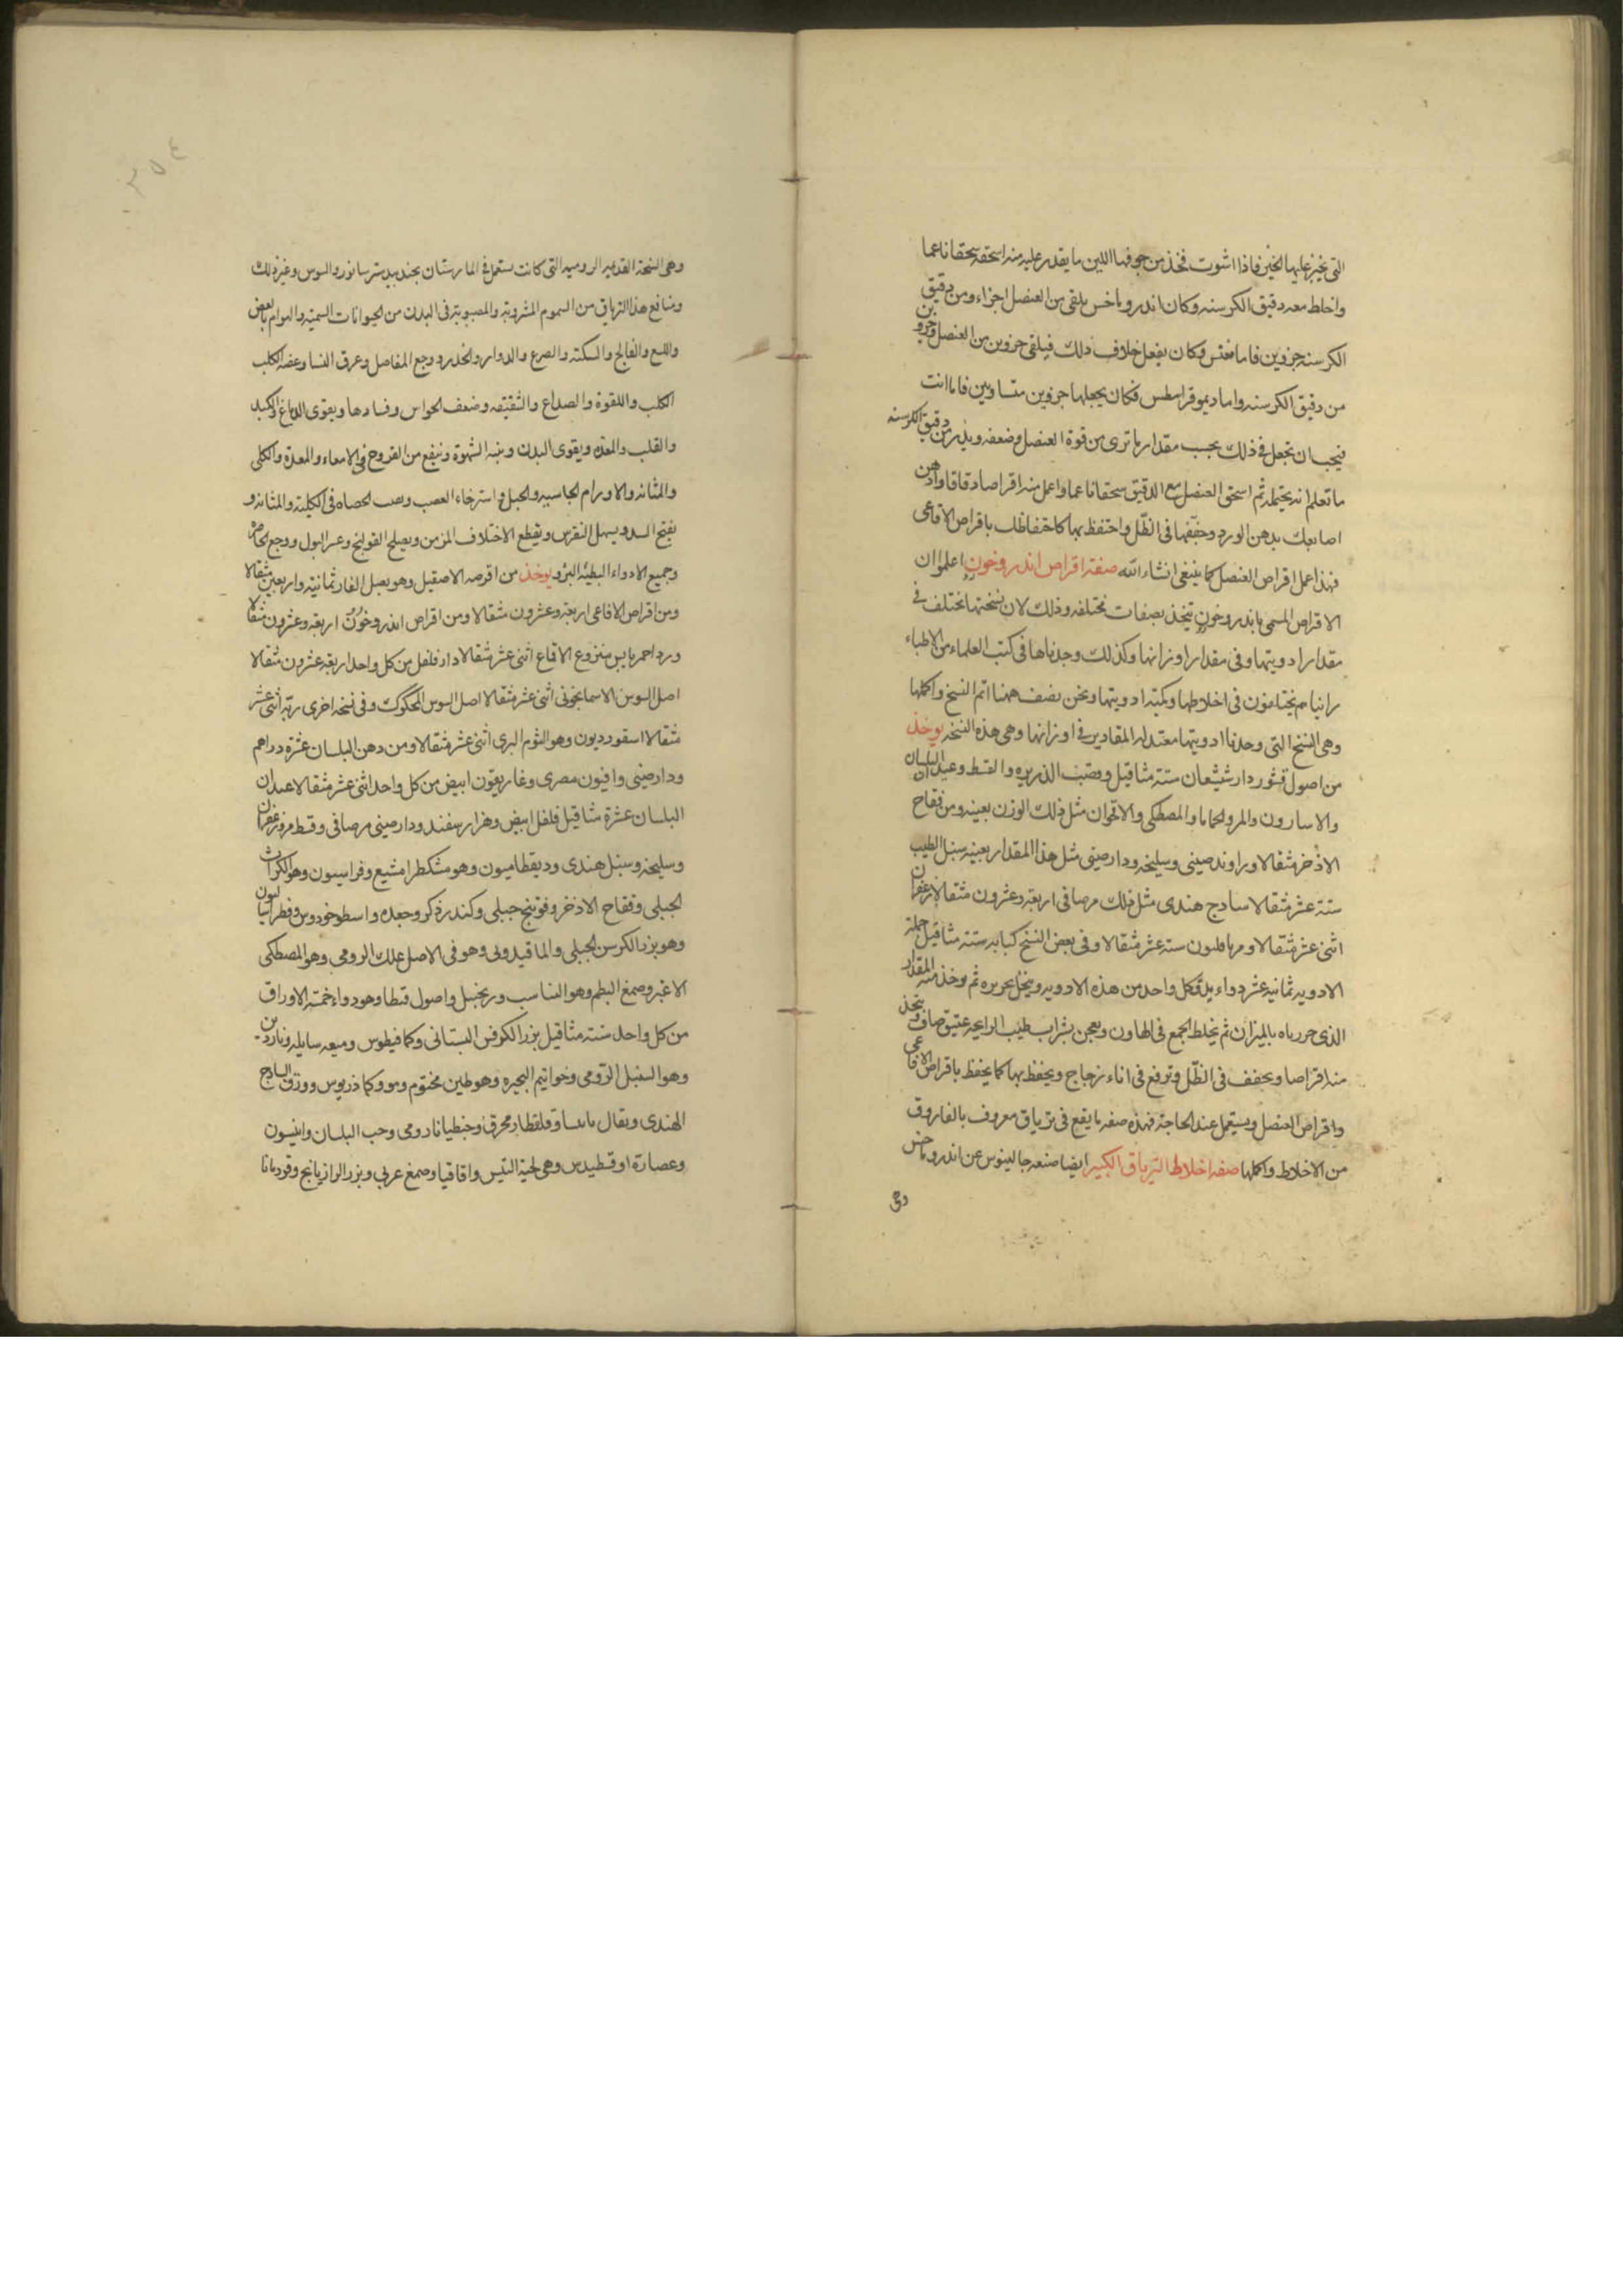 التى يخبز عليها الخبز فاذا اشوت فخذ من جوفها اللين ما يقدر عليه منه اسحقه سحقا ناعما
واخلط معه دقيق الكرسنه وكان اندروماخس يلقى من العنصل اجزاء ومن دقيق
الكرسنه جزوين فاما مغنس فكان يفعل خلاف ذلك فيلقى جزوين من العنصل وجزو
من دقيق الكرسنه واما ديموقراسطس فكان يجعلها جزوين متساويين فاما انت
فيجب ان تجعل فى ذلك بحسب مقدار ما ترى من قوة العنصل وضعفه من دقيق الكرسنه
ما تعلم انه يحتمله ثم اسحق العنصل مع الدقيق سحقا ناعما واعمل منه اقراصا دقاقا وادهن
اصابعك بدهن الورد وجففها فى الظل واحتفظ بها كاحتفاظك باقراص الافاعى
فهذا عمل اقراص العنصل كما ينبغى انشاء الله صفة اقراص اندروخون اعلم ان
الاقراص المسمى باندروخون تتخذ بصفات مختلفه وذلك لان نسختها تختلف فى
مقدار ادويتها وفى مقدار اوزانها وكذلك وجدناها فى كتب العلماء من الاطباء
رايناهم يختلفون فى اخلاطها وكمية ادويتها ونحن نصف ههنا اتم النسخ واكملها
وهى النسخ التى وجدنا ادويتها معتدله المقادير فى اوزانها وهى هذه النسخه يوخذ
من اصول قشور دارشيشعان ستة مثاقيل وقصب الذريره والقسط وعيدان البلسان
والاسارون والمر والحماما والمصطكى والاقحوان مثل ذلك الوزن بعينه ومن فقاح
الاذخر مثقالا وراوند صينى وسليخه ودارصينى مثل هذا المقدار بعينه سنبل الطيب
ستة عشر مثقالا سادج هندى مثل ذلك مر صافى اربعة وعشرون مثقالا زعفران
اثنى عشر مثقالا ومرماخون ستة عشر مثقالا وفى بعض النسخ كبابه ستة مثاقيل جملة
الادويه ثمانية عشر دواء يدق كل واحد من هذه الادويه وينخل بحريره ثم يوخذ منه المقدار
الذى حررناه بالميزان ثم يخلط الجمع فى الهاون ويعجن بشراب طيب الرايحه عتيق صاف ويتخذ
منه اقراصا ويجفف فى الظل وترفع فى اناء زجاج ويحفظ بها كما يحفظ باقراص الافاعى
واقراص العنصل ويستعمل عند الحاجة فهذه صفه ما يقع فى ترياق معروف بالفاروق
من الاخلاط واكملها صفه اخلاط الترياق الكبير ايضا صنعه جالينوس عن اندروماخس
وهى
وهى النسخة القديمه الروميه التى كانت تستعمل فى المارستان بجندبيدستر سابور والسوس وغير ذلك
ومنافع هذا الترياق من السموم المشروبة والمصبوبة فى البدن من الحيوانات السمية والهوام بالعض
واللسع والفالج والسكته والصرع والدوار والخدر ووجع المفاصل وعرق النسا وعضه الكلب
الكلب واللقوة والصداع والشقيقه وضعف الحواس وفسادها ويقوى الدماغ والكبد
والقلب والمعده ويقوى البدن وينبه الشهوة وينفع من القروح فى الامعاء والمعدة والكلى
والمثانه والاورام الجاسيه والحبل واسترخاء العصب ويفت الحصاه فى الكليته والمثانه و
يفتح السدد ويسهل النقرس ويقطع الاختلاف المزمن ويصلح القولنج وعسر البول ووجع الخاصره
وجميع الادواء البطيئه البرؤ يوخذ من اقرصه الاصقيل وهو بصل الفار ثمانية واربعين مثقالا
ومن اقراص الافاعى اربعة وعشرون مثقالا ومن اقراص اندروخون اربعة وعشرون مثقالا
ورد احمر يابس منزوع الاقماع اثنى عشر مثقالا دارفلفل من كل واحد اربعة عشرون مثقالا
اصل السوسن الاسمانجونى اثنى عشر مثقالا اصل السوس المحكوك وفى نسخه اخرى ربه اثنى عشر
مثقالا اسقورديون وهو الثوم البرى اثنى عشر مثقالا ومن دهن البلسان عشرة دراهم
ودارصينى وافيون مصرى وغاريقون ابيض من كل واحد اثنى عشر مثقالا عيدان
البلسان عشرة مثاقيل فلفل ابيض وهزار سفند ودارصينى مر صافى وقسط مر وزعفران
وسليخه وسنبل هندى وديقطاميون وهو مشكطرامشيع وفراسيون وهو الكراث
الجبلى وفقاح الاذخر وفوتنج جبلى وكندر ذكر وجعده واسطوخودوس وفطراساليون
وهو بزر الكرفس الجبلى والماقيدونى وهو فى الاصل علك الرومى وهو المصطكى
الاغبر وصمغ البطم وهو المناسب وزنجبيل واصول قنطا وهو دواء خمسة الاوراق
من كل واحد ستة مثاقيل بزر الكرفس البستانى وكمافيطوس وميعه سايله وناردين
وهو السنبل الرومى وخواتيم البحيره وهو طين مختوم ومو وكماذريوس وورق السادج
الهندى ويقال وقلقطار محرق وجنطيانا رومى وحب البلسان وانيسون
وعصارة اوقسطيدس وهى لحية التيس واقاقيا وصمغ عربى وبزر الرازيانج وقردمانا
٢٥٤